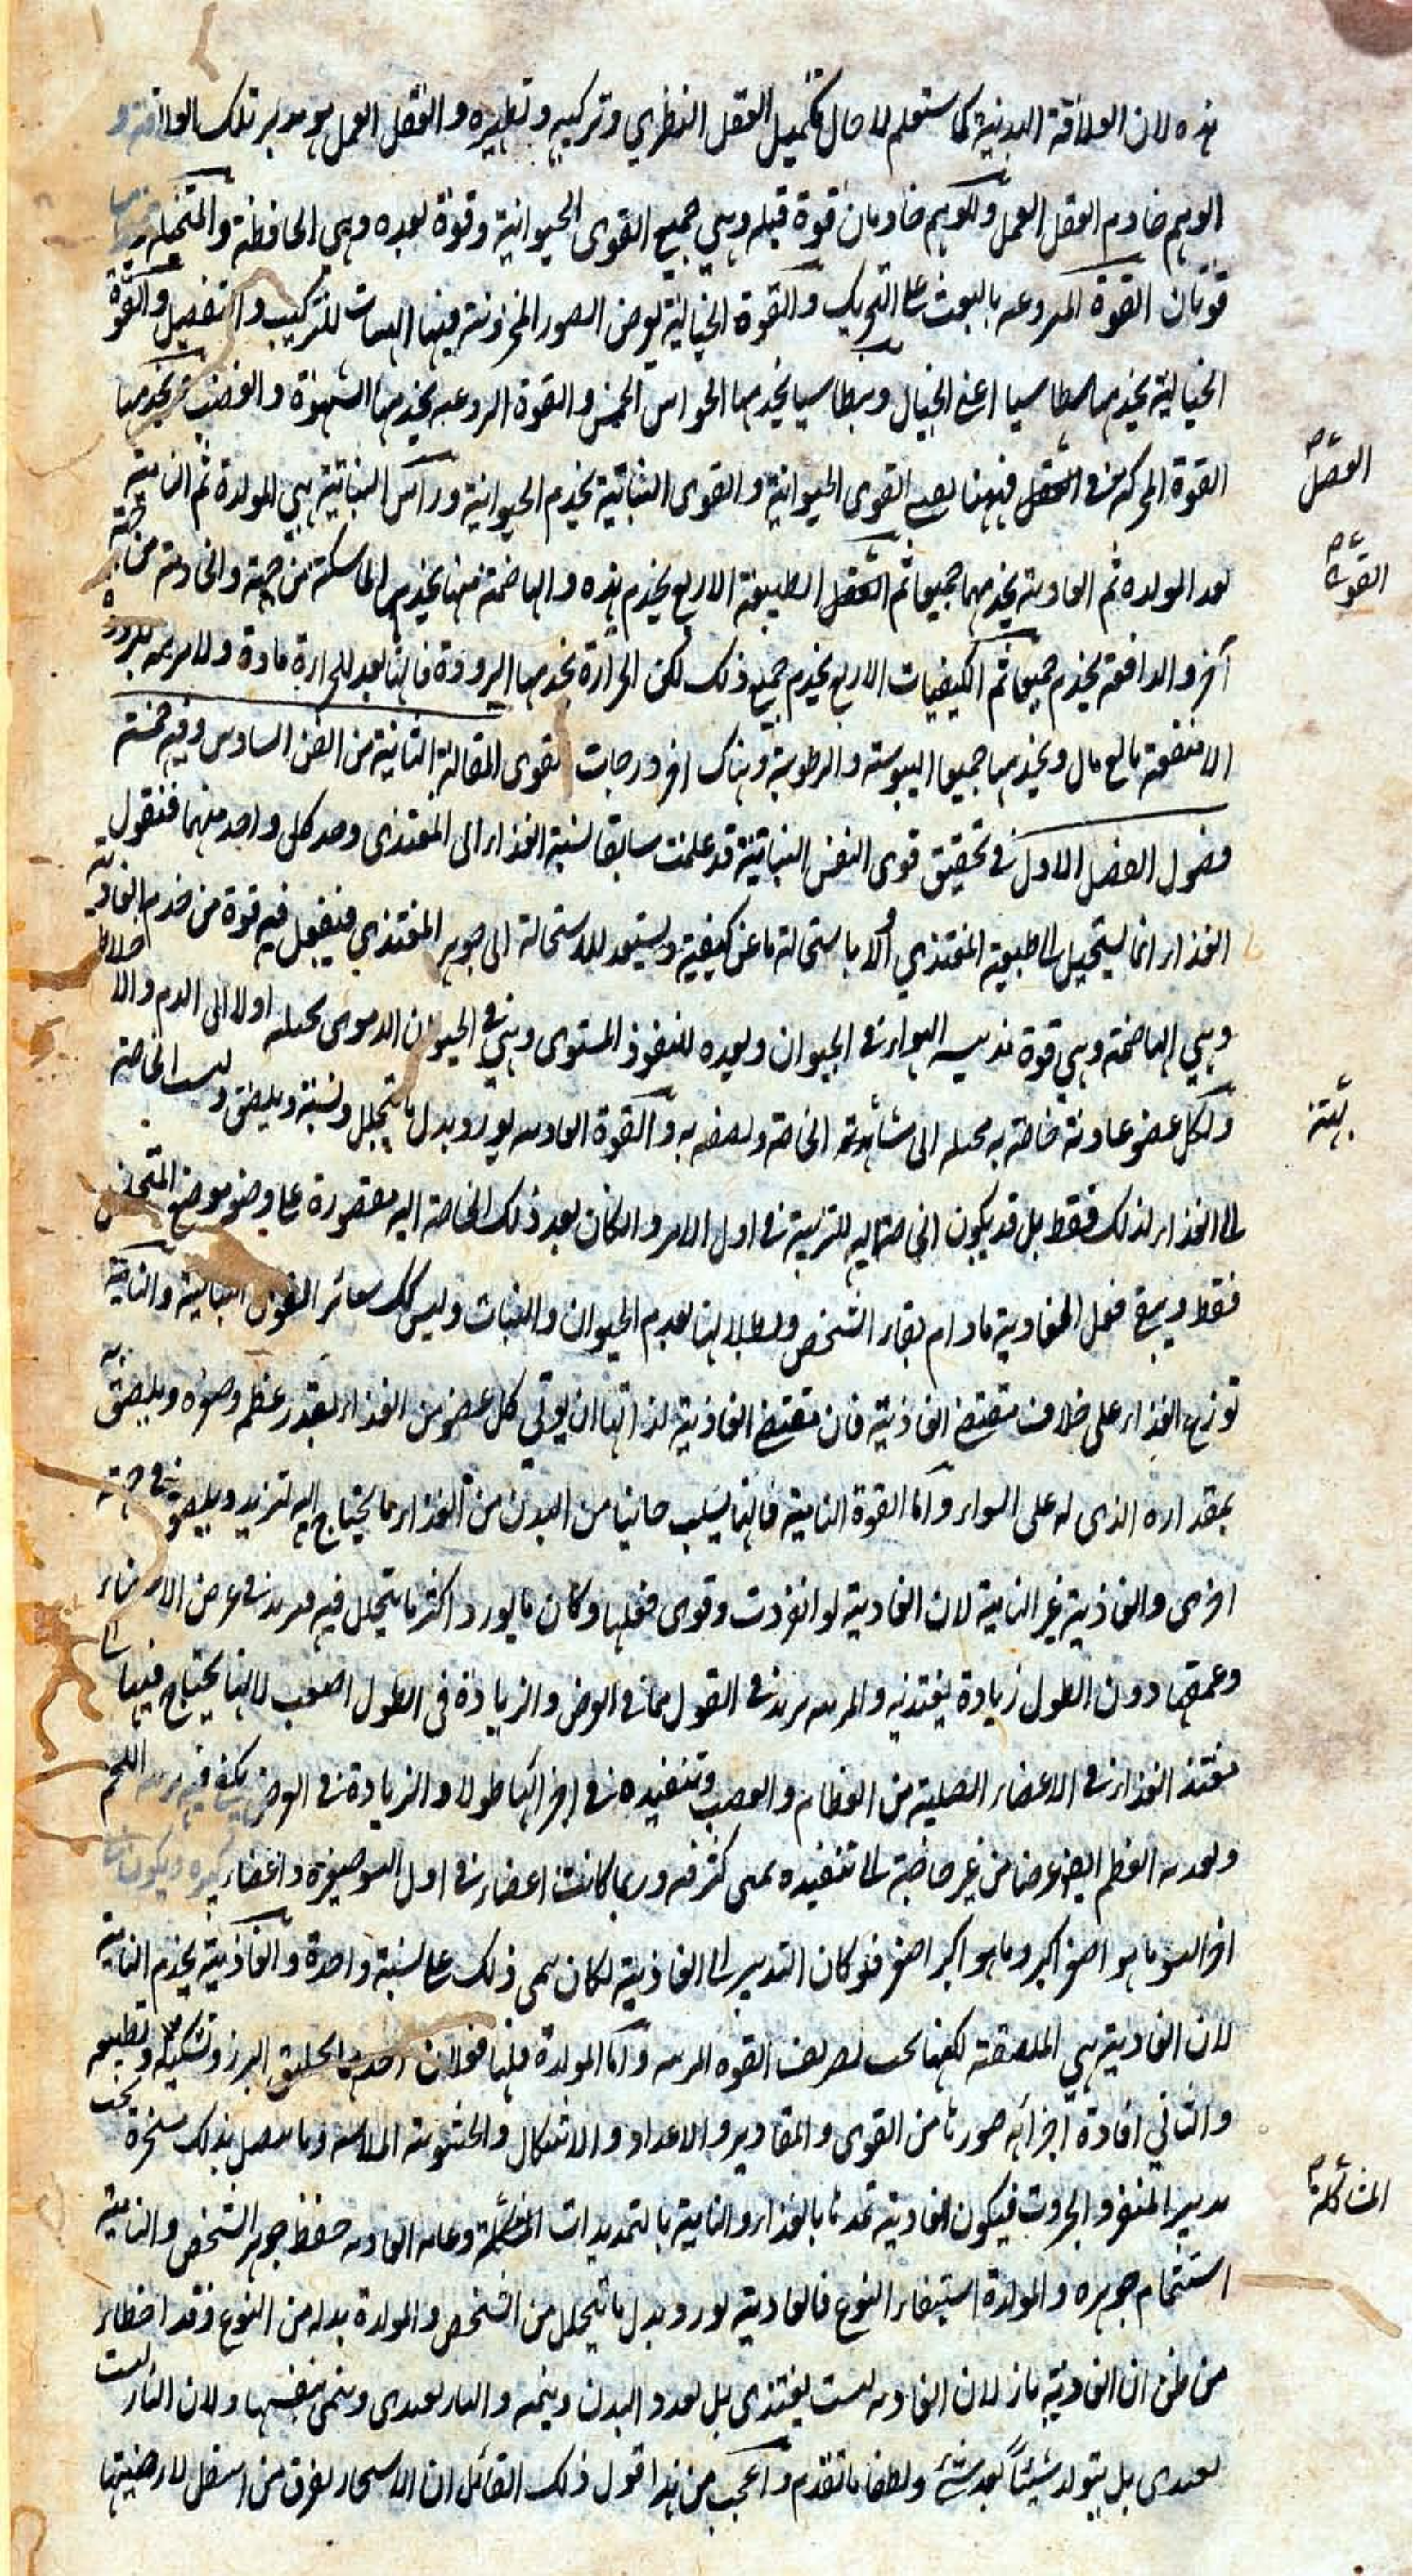 هذه لان العلاقة البدنية كما ستعلم لاحال تكميل العقل النظري وتزكيه وتطهيره والعقل العمل هو مدبر تلك العلاقة و
الوهم خادم العقل العمل وللوهم خادمان قوة قبله وهي جميع القوى الحيوانية وقوة بعده وهي الحافظة والمتخيلة يخدمها
قوتان القوة النروعه بالبعث على التحريك والقوة الخيالية بعرض الصور المخزونة فيها للتركيب والتفصيل والقوة
الخيالية يخدمها بنطاسيا اعنى الخيال وبنطاسيا يخدمها الحواس الخمس والقوة النروعيه يخدمها الشهوة والغضب يخدمها
القوة المحركة في العضل فههنا القوى الحيوانية والقوى النباتية يخدم الحيوانية وراس النباتية هي المولدة ثم النامية
بعد المولده ثم الغادية يخدمهما جميعا ثم الطبيعية الاربع يخدم هذه والهاضمة منها يخدمها الماسكة من جهة والجاذبة من جهة
آخر والدافعة يخدم جميعا ثم الكيفيات الاربع يخدم جميع ذلك لكن الحرارة يخدمها البرودة فانها تعد للحرارة مادة ولا مرتبه للبرودة
الا منفعة تابع مال ويخدمها جميعا اليبوسة والرطوبة وهناك اخر درجات القوى المقالة الثانية من الفن السادس وفيه خمسة
فصول الفصل الاول في تحقيق قوى النفس النباتية قد علمت سابقا نسبة الغذاء الى المغتذى وحد كل واحد منهما فنقول
الغذاء انما يستحيل الى طبيعة المغتذي اولا باستحالة ما عن كيفية ويستعد للاستحالة الى جوهر المغتذي فيفعل فيه قوة من خدم الغادية
وهي الهاضمة وهي قوة تذيب الغذاء في الحيوان ويعده للنفوذ المستوى وهي في الحيوان الدموى يحيله اولا الى الدم والاخلاط
ولكل عضو غادية خاصة به يحيله الى مشابهته الخاصة ويلصقه به والقوة الغاديه يورد بدل ما يتحلل ونسبة ويلصق وليست الحاجة
الى الغذاء لذلك فقط بل قد يكون الحاجة اليه للتربية في اول الامر وان كان بعد ذلك الحاجة اليه مقصورة على وضع موضع المتحلل
فقط ويبقى فعل الغادية ما دام بقاء الشخص وبطلانها بعدم الحيوان والنبات وليس كك سائر القوى النباتية والنامية
توزع الغذاء على خلاف مقتضى الغاذية فان مقتضى الغاذية لذاتها ان يؤتى كل عضو من الغذاء بقدر عظمه وصغره ويلصق به
بمقداره الذى له على السواء واما القوة النامية فانها يسلب جانبا من البدن من الغذاء ما يحتاج اليه لتزيد ويلصقه في جهة
اخرى والغاذية غير النامية لان الغادية لو انفردت وقوى فعلها وكان ما يورد اكثر مما يتحلل فيه يزيد في عرض الاعضاء
وعمقها دون الطول زيادة يغتذيه والمربيه يزيد في الطول مما في العرض والزيادة في الطول اصعب لانها يحتاج فيها الى
تنفذ الغذاء في الاعضاء الصلبة من العظام والعصب وتنفيذه في اجزائها طولا والزيادة في العرض يكفى فيه تربية اللحم
وتغدية العظم ايضا عرضا من غير حاجة الى تنفيذه بمعنى كثرته وربما كانت اعضاء في اول النشو صغيرة واعضاء كبيره ويكون في
اخر النشو ما هو اصغر اكبر وما هو اكبر اصغر فلو كان التدبير الى الغاذية لكان يمر ذلك على نسبة واحدة والغاذية يخدم النامية
لان الغادية هي الملصقة لكنها تحت تصريف القوه المربيه واما المولدة فلها فعلان احدهما تخليق البزر وتشكيله وتطبيعه
والثاني افادة اجزائه صورتا من القوى والمقادير والاعداد والاشكال والخشونة الملاسة وما يتصل بذلك مسخرة تحت
تدبير المتفرد بالجبروت فيكون الغادية تمدها بالغذاء والنامية بالتمديدات المشاكلة وغاية الغاديه حفظ جوهر الشخص والنامية
استتمام جوهره والمولدة استبقاء النوع فالغادية يورد بدل ما يتحلل من الشخص والمولدة بدله من النوع وقد اخطاء
من ظن ان الغاذية نار لان الغاديه ليست يغتذى بل تغدو البدن وينميه والنار تغتدى وينمى بنفسها ولان النار ليست
تغتدى بل يتولد شيئا بعد شئ ويطفا ما تقدم واعجب من هذا قول ذلك القائل ان الاشجار يعرق من اسفل لارضيتها
العضل
القوة
المشاكلة